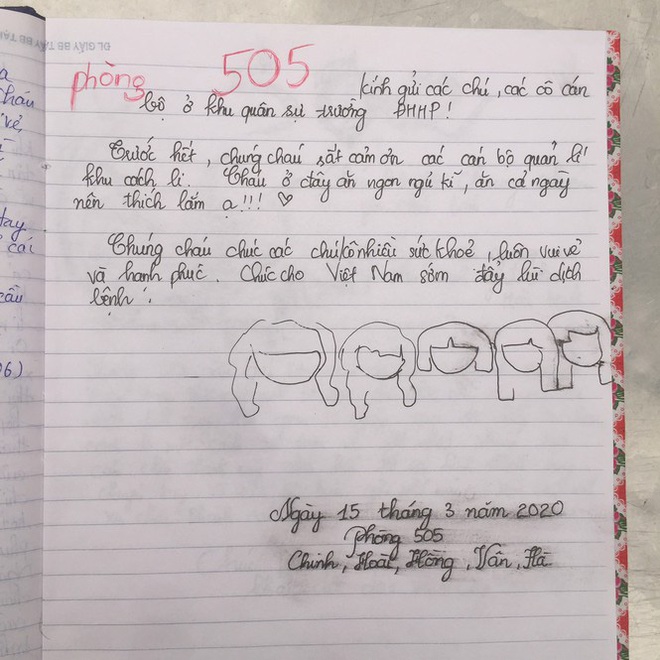 phòng 505 kính gửi các chú, các cô cán
bộ ở khu quân sự trường ĐHHP!
Trước hết, chúng cháu rất cảm ơn các cán bộ quản lí
khu cách li. Cháu ở đây ăn ngon ngủ kĩ, ăn cả ngày
nên thích lắm ạ!!! ♡
Chúng cháu chúc các chú/cô nhiều sức khoẻ, luôn vui vẻ
và hạnh phúc. Chúc cho Việt Nam sớm đẩy lùi dịch
bệnh.
Ngày 15 tháng 3 năm 2020
Phòng 505
Chinh, Hoài, Hồng, Vân, Hà